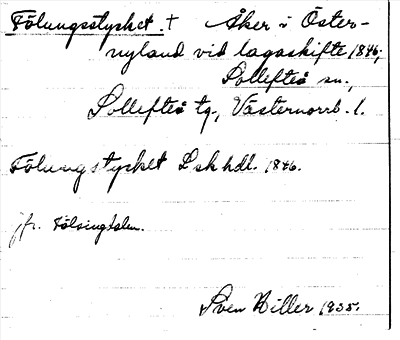 Fölungsstycket. † Åker i Öster-
nyland vid lagaskifte 1846;
Sollefteå sn.,
Sollefteå tg., Västernorrl. l.
Fölungstycket Lskhdl. 1846.
jfr. Fölsingdalen.
Sven Biller 1935.